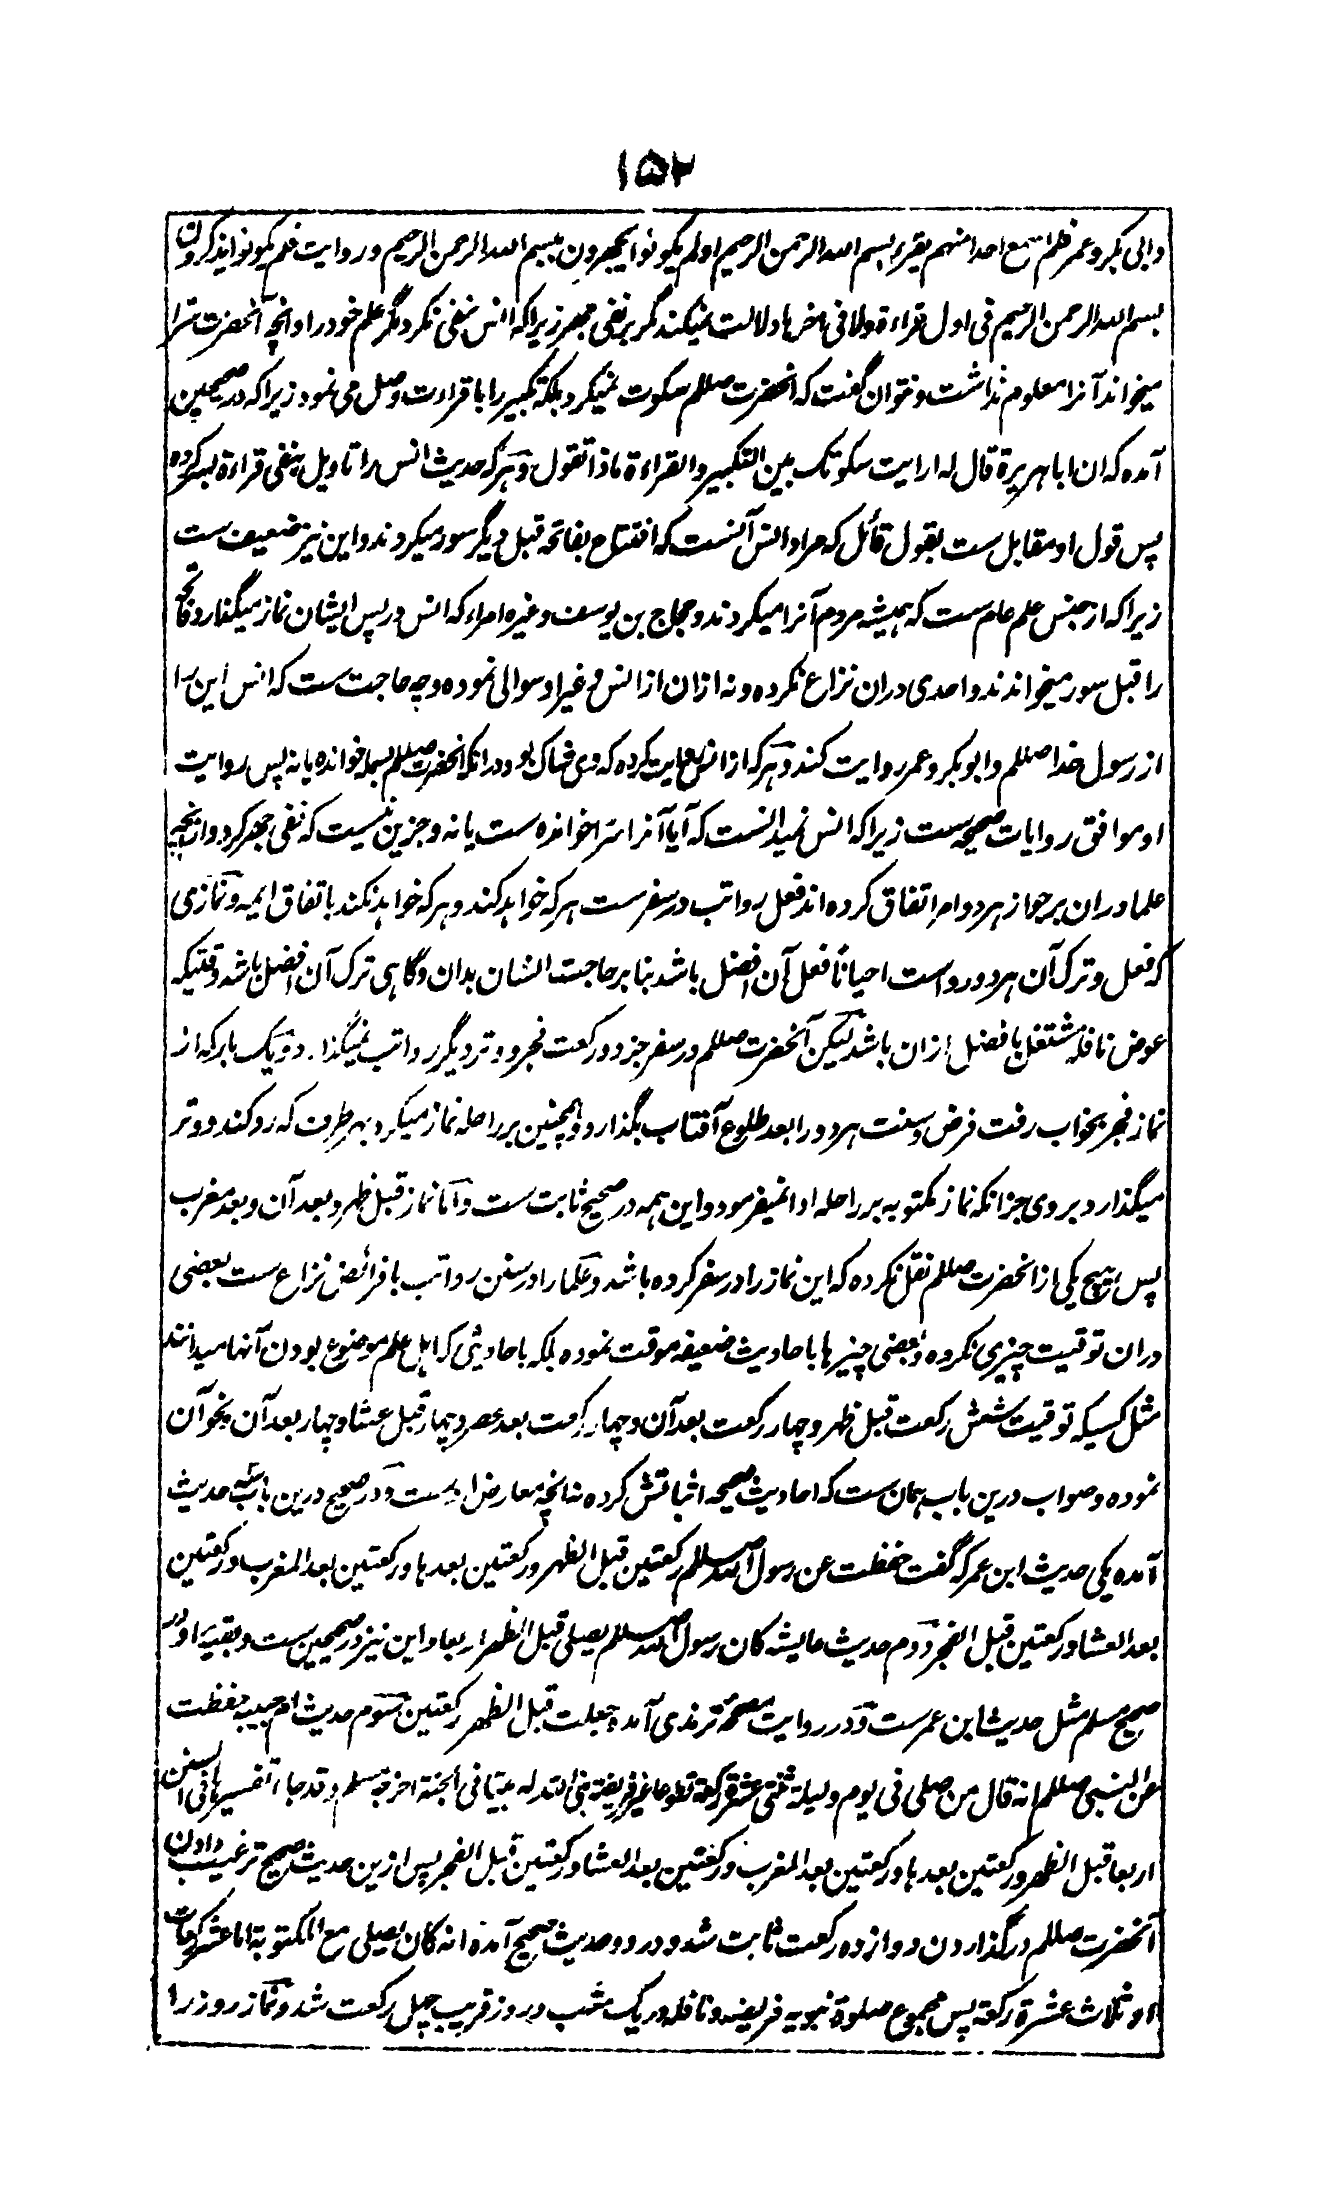 ۱۵۲
وابی بکر و عمر فلم اسمع احدا منهم یقرء بسم الله الرحمن الرحیم اولم یکونوا یجهرون ببسم الله الرحمن الرحیم و روایت فلم یکونوا یذکرون
بسم الله الرحمن الرحیم فی اول قراءة ولا فی اخرها دلالت نمیکند مگر بر نفی جهر زیراکه انس نفی نکرد مگر علم خود را و انچه آنحضرت سرا
میخواند آنرا معلوم نداشت و نتوان گفت که انحضرت صللم سکوت نمیکرد بلکه تکبیر را با قراءت وصل می نمود زیراکه در صحیحین
آمده که ان ابا هریرة قال له ارایت سکوتک بین التکبیر والقراءة ماذا تقول و هرکه حدیث انس را تاویل بنفی قراءة بسمله کرده
پس قول او مقابل ست بقول قائل که مراد انس آنست که افتتاح بفاتحه قبل دیگر سور میکردند و این نیز ضعیف ست
زیراکه از جنس علم عام ست که همیشه مردم آنرا میکردند و حجاج بن یوسف و غیره امراء که انس در پس ایشان نماز میگذارد فاتحه
را قبل سور میخواندند و احدی دران نزاع نکرده و نه ازان از انس و غیر او سوالی نموده و چه حاجت ست که انس این را
از رسول خدا صللم و ابوبکر و عمر روایت کند و هرکه از انس روایت کرده که وی شاک بود درانکه انحضرت صللم بسمله خوانده یا نه پس روایت
او موافق روایات صحیحه ست زیراکه انس نمیدانست که آیا آنرا سرا خوانده ست یا نه و جز این نیست که نفی جهر کرد و ازانچه
علما دران بر جواز هر دو امر اتفاق کرده اند فعل رواتب در سفر ست هرکه خواهد کند و هرکه خواهد نکند باتفاق ایمه و نمازی
که فعل و ترک آن هر دو رواست احیانا فعل آن افضل باشد بنابر حاجت انسان بدان و گاهی ترک آن افضل باشد وقتیکه
عوض نافله مشتغل بافضل ازان باشد لیکن آنحضرت صللم در سفر جز دو رکعت فجر و وتر دیگر رواتب نمیگذارد و یک بار که از
نماز فجر بخواب رفت فرض و سنت هر دو را بعد طلوع آفتاب بگذارد و همچنین بر راحله نماز میکرد بهر طرف که رو کند و وتر
میگذارد بروی جز انکه نماز مکتوبه بر راحله ادا نمیفرمود و این همه در صحیح ثابت ست و اما نماز قبل ظهر و بعد آن و بعد مغرب
پس هیچ یکی از انحضرت صللم نقل نکرده که این نماز را در سفر کرده باشد و علما را در سنن رواتب با فرائض نزاع ست بعضی
دران توقیت چیزی نکرده و بعضی چیزها باحادیث ضعیفه موقت نموده بلکه باحادیثی که اهل علم موضوع بودن آنها میدانند
مثل کسیکه توقیت شش رکعت قبل ظهر و چهار رکعت بعد آن و چهار رکعت بعد عصر و چهار قبل عشا و چهار بعد آن و نحو آن
نموده و صواب درین باب همان ست که احادیث صحیحه اثباتش کرده نه انچه معارض اوست و در صحیح درین باب سه حدیث
آمده یکی حدیث ابن عمر که گفت حفظت عن رسول الله صللم رکعتین قبل الظهر و رکعتین بعدها و رکعتین بعد المغرب و رکعتین
بعد العشا و رکعتین قبل الفجر دوم حدیث عایشه کان رسول الله صللم یصلی قبل الظهر اربعا و این نیز در صحیحین ست و بقیه او در
صحیح مسلم مثل حدیث ابن عمر ست و در روایت مصححه ترمذی آمده جعلت قبل الظهر رکعتین سوم حدیث ام حبیبه حفظت
عن النبی صللم انه قال من صلی فی یوم ولیلة ثنتی عشرة رکعة تطوعا غیر فریضة بنی الله له بیتا فی الجنة اخرجه مسلم وقد جاء تفسیرها فی السنن
اربعا قبل الظهر و رکعتین بعدها و رکعتین بعد المغرب و رکعتین بعد العشا و رکعتین قبل الفجر پس ازین حدیث صحیح ترغیب دادن
آنحضرت صللم در گذاردن دوازده رکعت ثابت شد و در دو حدیث صحیح آمده انه کان یصلی مع المکتوبة اما عشر رکعات
او ثلاث عشرة رکعة پس مجموع صلوة نبویه فریضه و نافله در یک شب و روز قریب چهل رکعت شد و نماز روز را